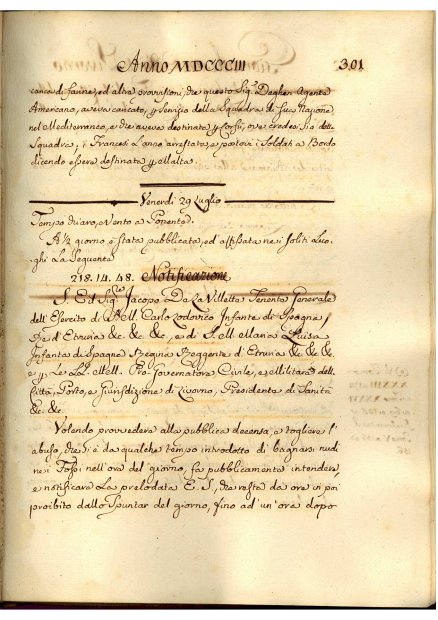 Anno MDCCCIII 301
carica di farine, ed altre provvisioni, che questo Sig. Deghen Agente
Americano, aveva caricato, p servizio della Squadra di sua Nazione
nel Mediterraneo, e che aveva destinato p Corfù, ove credesi sia detta
Squadra; i Francesi l'anno arrestato, e postovi i Soldati a Bordo
dicendo essere destinato p Malta.
Venerdì 29 Luglio
Tempo chiaro, e Vento a Ponente.
A ½ giorno è stata pubblicata, ed affissata nei soliti Luo-
ghi La Seguente
218. 14. 48. Notificazione
S. E. il Sig.re Jacopo De La Villetta Tenente Generale
dell'Esercito di S. M. Carlo Lodovico Infante di Spagna
Re d'Etruria &c. &c. &c., e di S. M. Maria Luisa
Infanta di Spagna Regina Reggente d'Etruria &c. &c. &c.
e p Le LL. MM. Pro-Governatore Civile, e Militare della
Città, Porto, e Giurisdizione di Livorno, Presidente di Sanità
&c. &c.
Volendo provvedere alla pubblica decenza, e togliere l'
abuso, che si è da qualche tempo introdotto di bagnarsi nudi
nei Fossi nell'ora del giorno, fa pubblicamente intendere,
e notificare La prelodata E. S., che resta da ora in poi
proibito dallo Spuntar del giorno, fino ad un'ora dopo